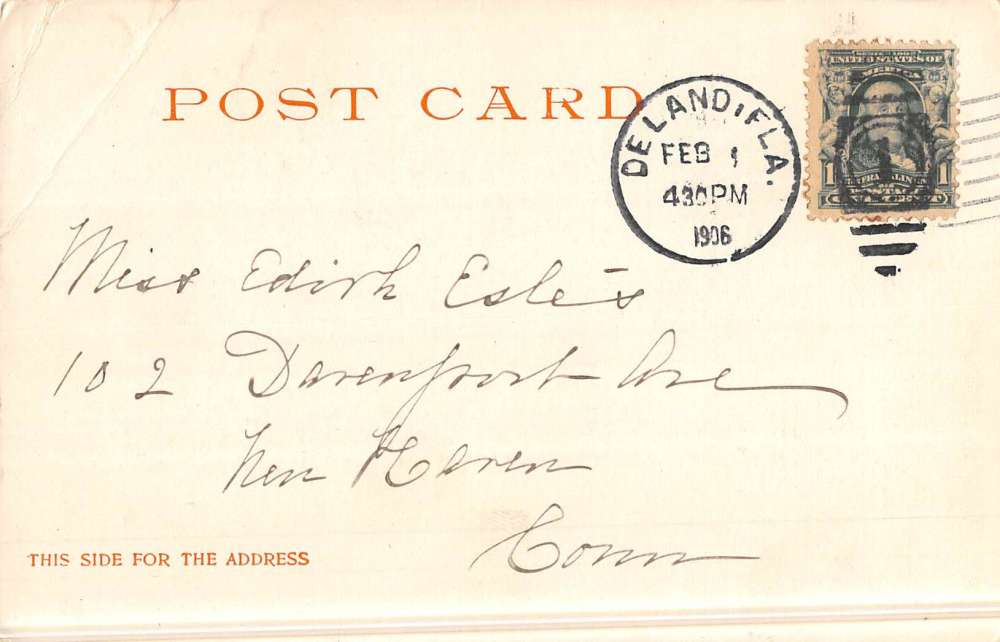 POST CARD
DELAND, FLA.
FEB 1
430PM
1906
SERIES 1902
UNITED STATES OF
AMERICA
1 1
FRANKLIN
POSTAGE
ONE CENT
1
Miss Edith Estes
102 Davenport Ave
New Haven
Conn
THIS SIDE FOR THE ADDRESS